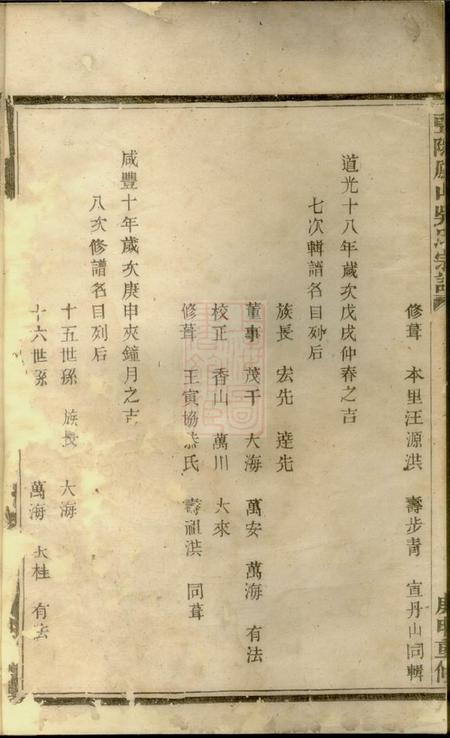 修葺 本里汪源洪 壽步青 宣丹山同輯
道光十八年歲次戊戌仲春之吉
七次輯譜名目列后
族長 宏先 達先
董事 茂千 大海 萬安 萬海 有法
校正 香山 萬川 大來
修葺 王寅協 氏 壽祖洪 同葺
咸豐十年歲次庚申夾鐘月之吉
八次修譜名目列后
十五世孫 族長 大海
十六世孫 萬海 大桂 有法
庚申重修